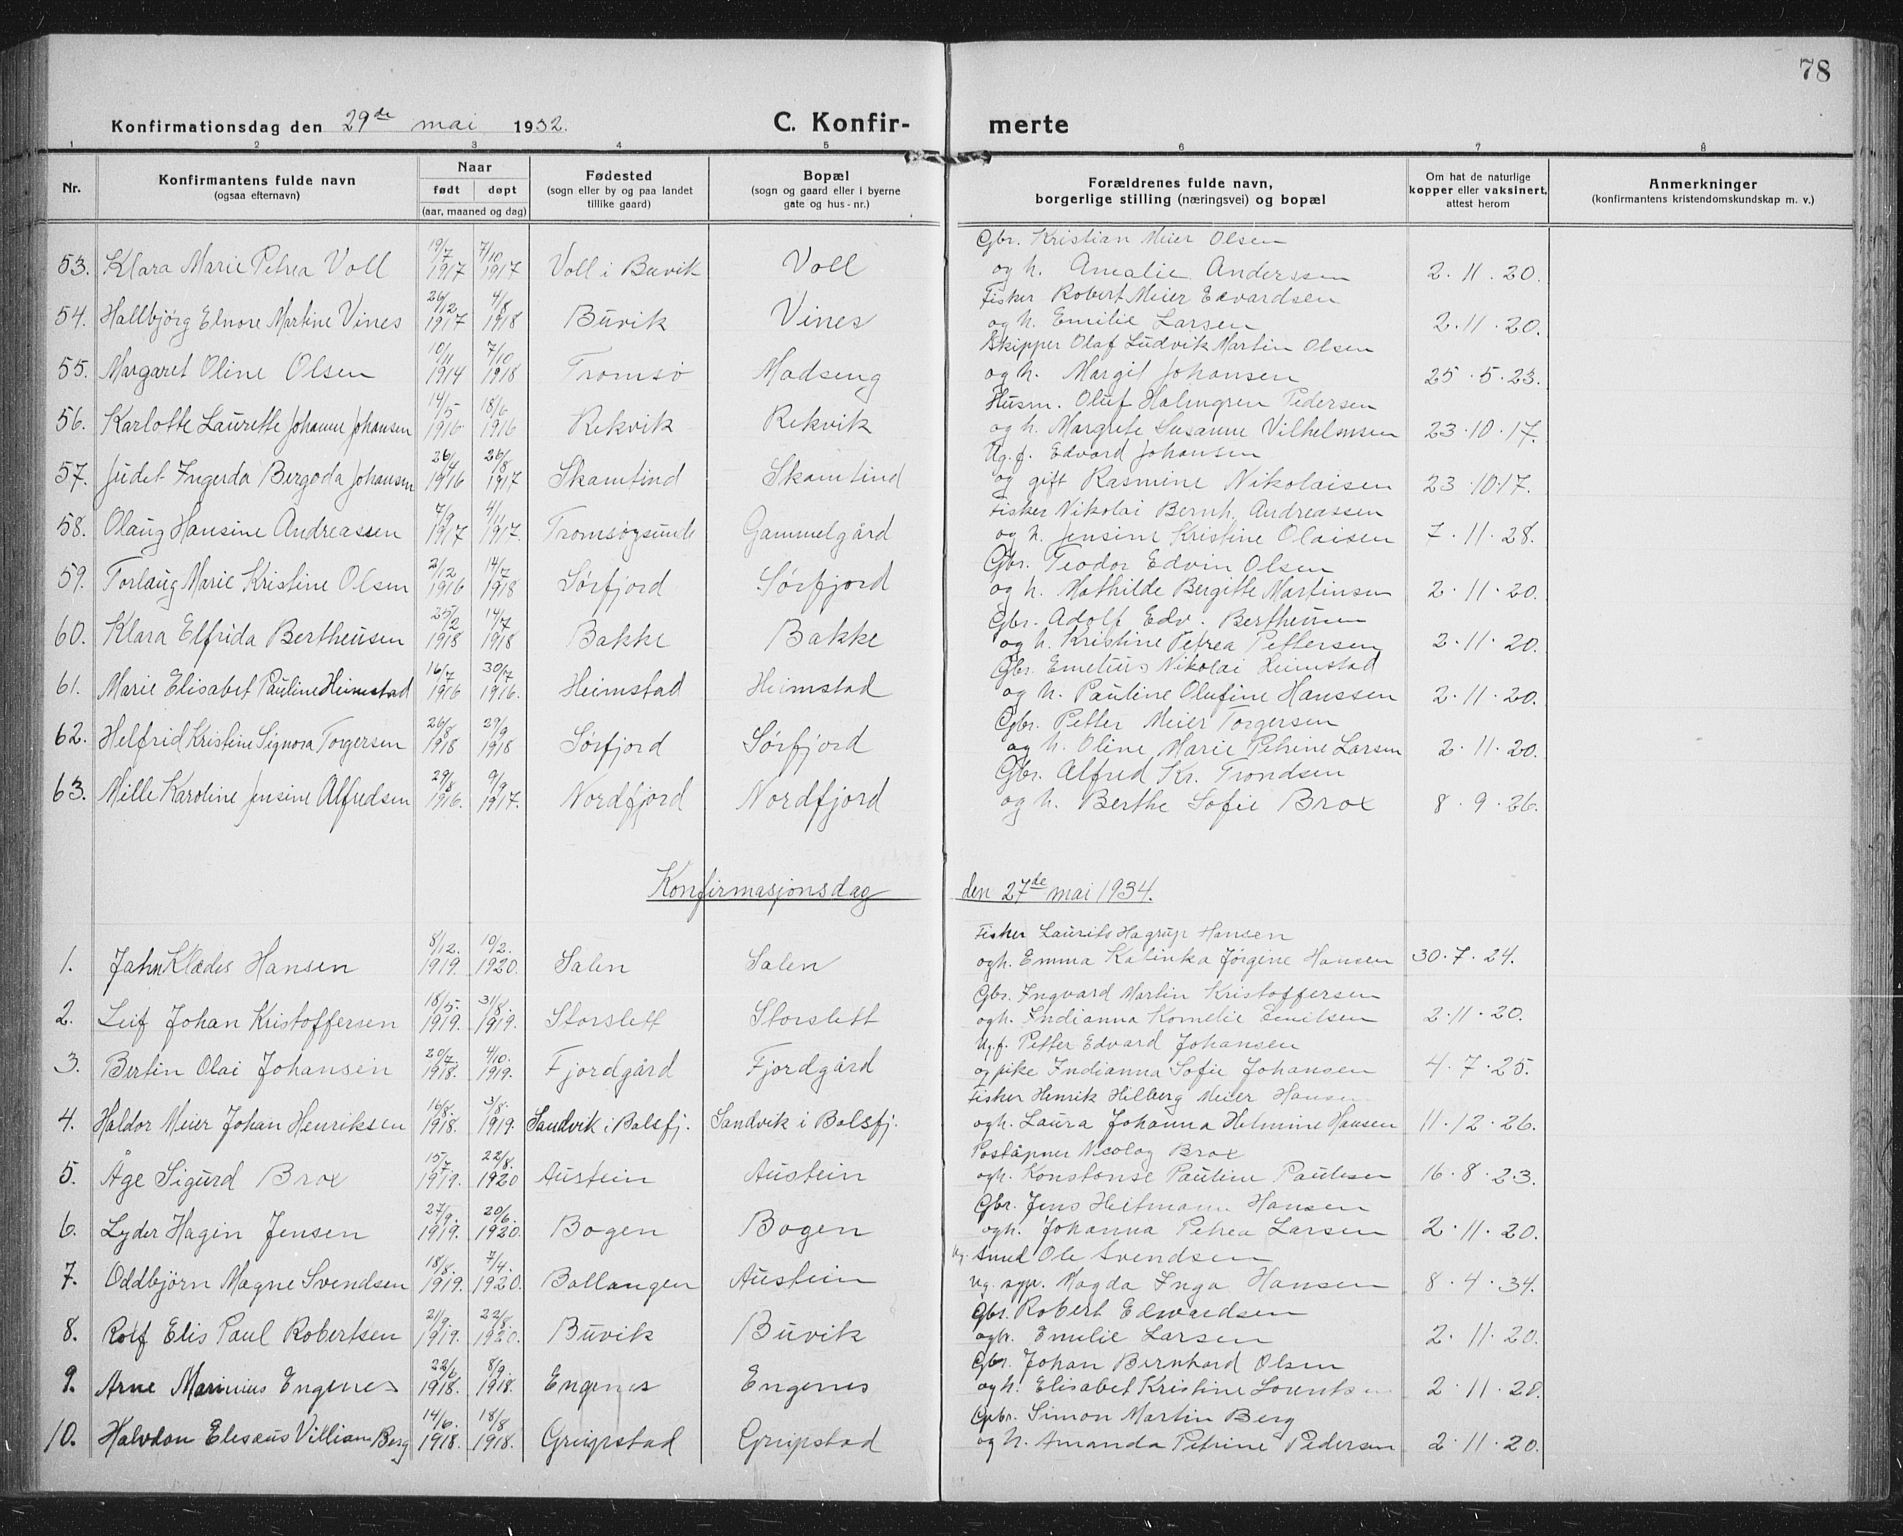 78
Konfirmationsdag den 29de mai 1932. C. Konfir- merte
1 2 3 4 5 6 7 8
Nr. Konfirmantens fulde navn (ogsaa efternavn) Naar født døpt (aar, maaned og dag) Fødested (sogn eller by og paa landet tillike gaard) Bopæl (sogn og gaard eller i byerne gate og hus-nr.) Forældrenes fulde navn, borgerlige stilling (næringsvei) og bopæl Om hat de naturlige kopper eller vaksinert, attest herom Anmerkninger (konfirmantens kristendomskundskap m. v.)
Gbr. Kristian Meier Olsen
53. Klara Marie Petrea Voll 19/7 1917 7/10 1917 Voll i Buvik Voll og h. Amalie Anderssen 2.11.20.
Fisker Robert Meier Edvardsen
54. Hallbjørg Elnore Martine Vines 26/12 1917 4/8 1918 Buvik Vines og h. Emilie Larsen 2.11.20.
Skipper Olaf Ludvik Martin Olsen
55. Margaret Oline Olsen 10/11 1914 7/10 1918 Tromsø Madseng og h. Margit Johansen 25.5.23.
Husm. Oluf Holmgren Pedersen
56. Karlotte Laurette Johanne Johansen 14/5 1916 18/6 1916 Rekvik Rekvik og h. Margrete Susanne Vilhelmsen 23.10.17.
Ug.f. Edvard Johansen
57. Judet Ingerda Bergoda Johansen 26/4 1916 26/8 1917 Skamtind Skamtind og gift Rasmine Nikolaisen 23.10.17.
Fisker Nikolai Bernh. Andreassen
58. Olaug Hansine Andreassen 7/9 1917 4/11 1917. Tromsøysundt Gammelgård og h. Jensine Kristine Olaisen 7.11.28.
Gbr. Teodor Edvin Olsen
59. Torlaug Marie Kristine Olsen 2/12 1916 14/7 1918 Sørfjord Sørfjord og h. Mathilde Bergitte Martinsen 2.11.20.
Gbr. Adolf Edv. Bertheusen
60. Klara Elfrida Bertheusen 25/2 1918 14/7 1918 Bakke Bakke og h. Kristine Petrea Pettersen 2.11.20.
Gbr. Emelius Nikolai Heimstad
61. Marie Elisabet Pauline Heimstad 16/7 1916 30/7 1916. Heimstad Heimstad og h. Pauline Olufine Hanssen 2.11.20.
Gbr. Petter Meier Torgersen
62. Helfrid Kristine Signora Torgersen 26/8 1918 29/9 1918 Sørfjord Sørfjord og h. Oline Marie Petrine Larsen 2.11.20.
Gbr. Alfred Kr. Trondsen
63. Mille Karoline Jensine Alfredsen 29/8 1916. 9/9 1917. Nordfjord Nordfjord og h. Berthe Sofie Brox 8.9.26.
Konfirmasjonsdag den 27de mai 1934.
Fisker Laurits Hagrup Hansen
1. Jahn Klædes Hansen 8/12. 1919. 10/2. 1920. Salen Salen og h. Emma Katinka Jørgine Hansen 30.7.24.
Gbr. Ingvard Martin Kristoffersen
2. Leif Johan Kristoffersen 18/5. 1919. 31/8. 1919. Storslett Storslett og h. Indianna Kornelie Emilsen 2.11.20.
Ug.f. Petter Edvard Johansen
3. Bertin Olai Johansen 20/7. 1918. 4/10. 1919. Fjordgård Fjordgård og pike Indianna Sofie Johansen 4.7.25.
Fisker Henrik Hilberg Meier Hansen
4. Haldor Meier Johan Henriksen 16/8. 1918. 3/8. 1919. Sandvik i Balsfj. Sandvik i Balsfj. og h. Laura Johanna Helmine Hansen 11.12.26.
Poståpner Nicolay Brox
5. Åge Sigurd Brox 15/7 1919. 22/8. 1920 Austein Austein og h. Konstanse Pauline Paulsen 16.8.23.
Gbr. Jens Heitmann Hansen
6. Lyder Hagin Jensen 27/9. 1919. 20/6. 1920. Bogen Bogen og h. Johanna Petrea Larsen 2.11.20.
Ug. Smed Ole Svendsen
7. Oddbjörn Magne Svendsen 18/8. 1919. 7/4. 1920. Ballangen Austein ug. syp. Magda Inga Hansen 8.4.34.
Gbr. Robert Edwardsen
8. Rolf Elis Paul Robertsen 21/9. 1919. 22/8. 1920. Buvik Buvik og h. Emilie Larsen 2.11.20.
Gbr. Johan Bernhard Olsen
9. Arne Marinius Engenes 22/6 1918. 8/9. 1918. Engenes Engenes og h. Elisabet Kristine Lorentsen 2.11.20.
Gbr. Simon Martin Berg
10. Halvdan Eliseus Villiam Berg 14/6. 1918. 18/8 1918. Greipstad Greipstad og h. Amanda Petrine Pedersen 2.11.20.